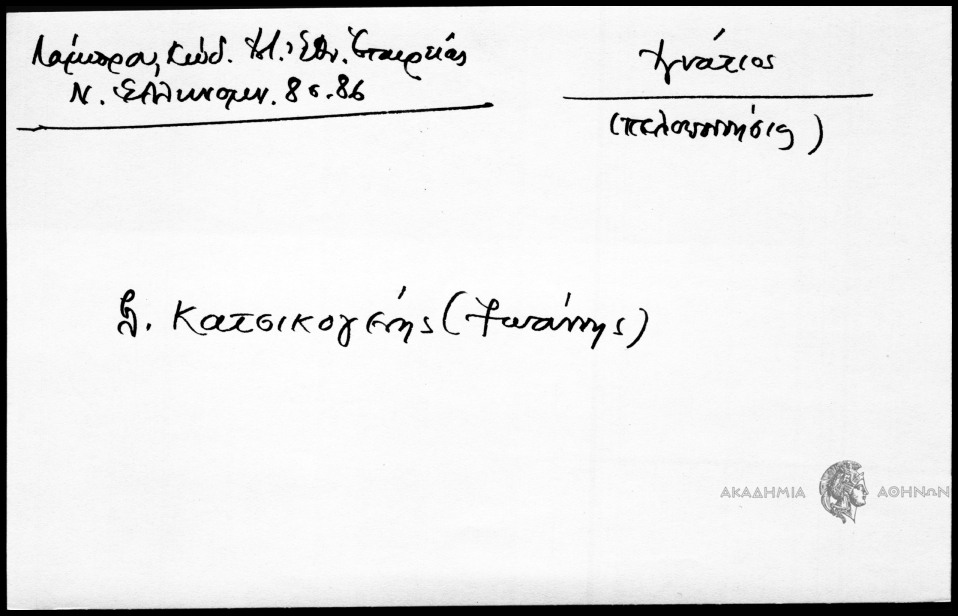 Λάμπρου, Κώδ. Ἱστ. Ἐθν. Ἑταιρείας
Ν. Ἑλληνομν. 8 σ. 86
Ἰγνάτιος
(πελοποννήσιος)
βλ. Κατσικογένης (Ἰωάννης)
ΑΚΑΔΗΜΙΑ ΑΘΗΝΩΝ